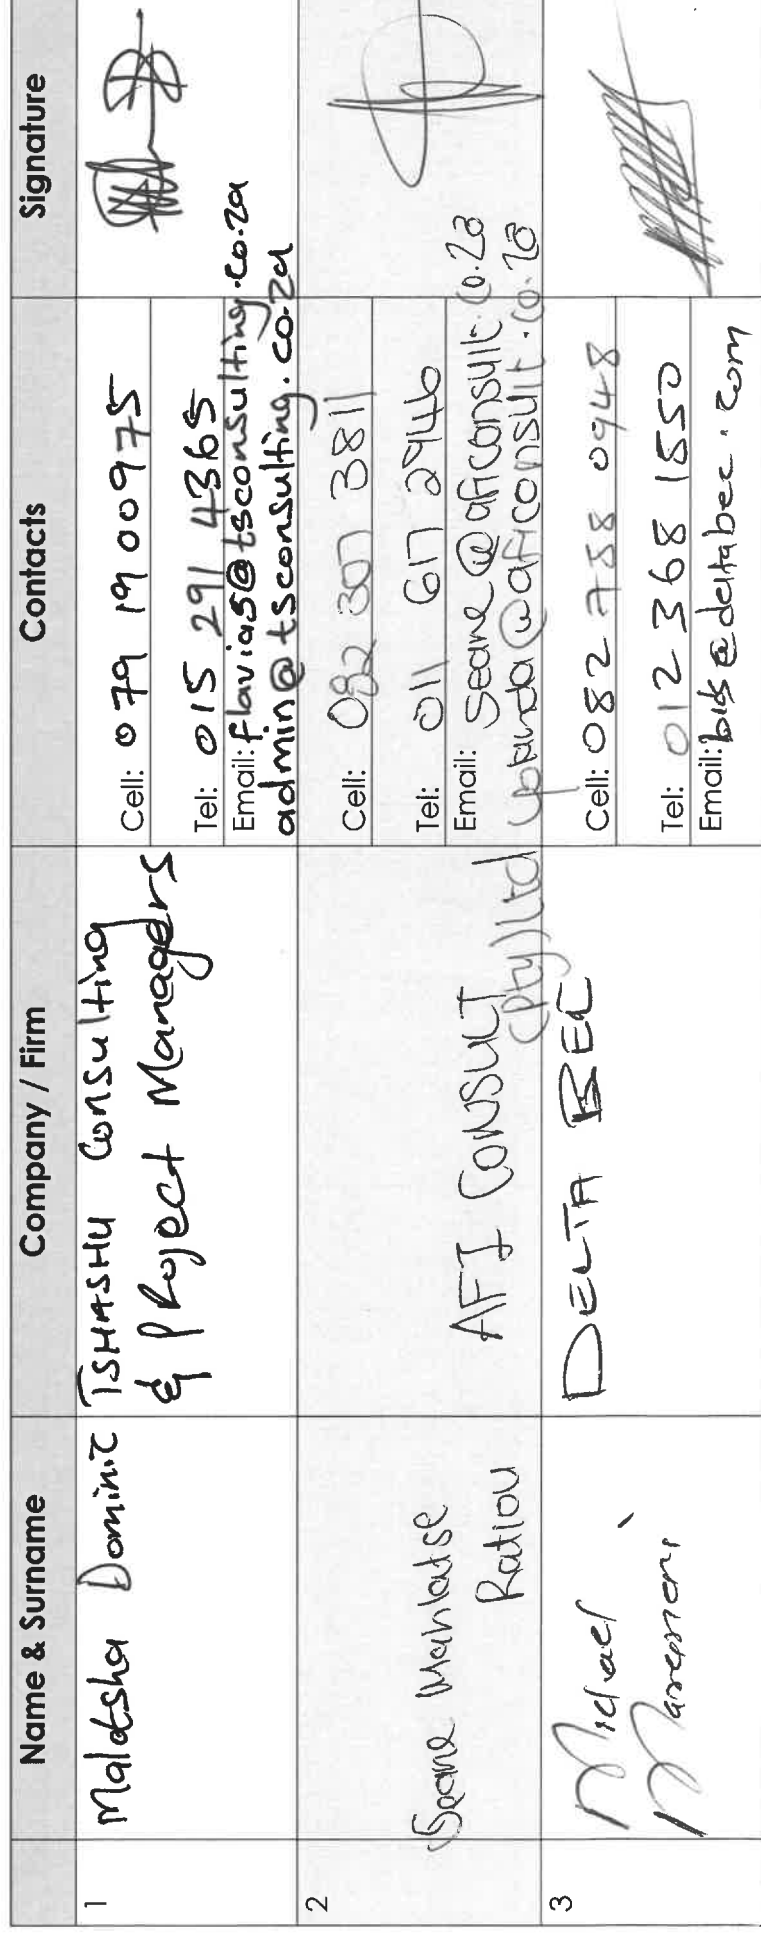 Name & Surname Company / Firm Contacts Signature
1 Malatsha Dominic TSHASHU Consulting & Project Managers
Cell: 079 19 00975
Tel: 015 291 4365
Email: flavias@tsconsulting.co.za
admin@tsconsulting.co.za
2 Seane Mahlatse
AFI CONSULT (Pty) Ltd
Cell: 082 307 3811
Tel: 011 617 2946
Email: Seane@aficonsult.co.za
@aficonsult.co.za
3 Michael
DELTA BEC
Cell: 082 788 0948
Tel: 012 368 1850
Email: bids@deltabec.com